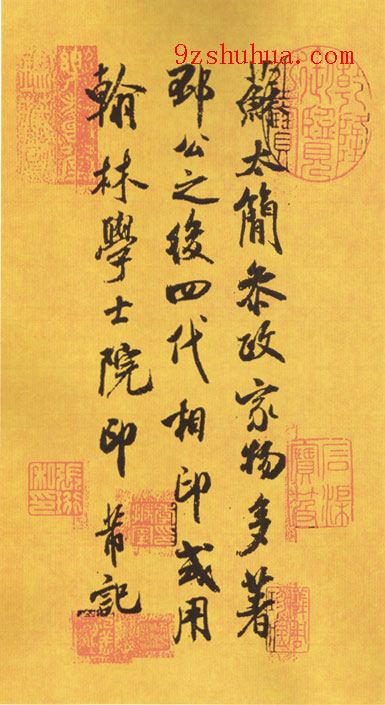 9zshuhua.com
蘇太簡參政家物多著
邳公之後四代相印或用
翰林學士院印 芾記